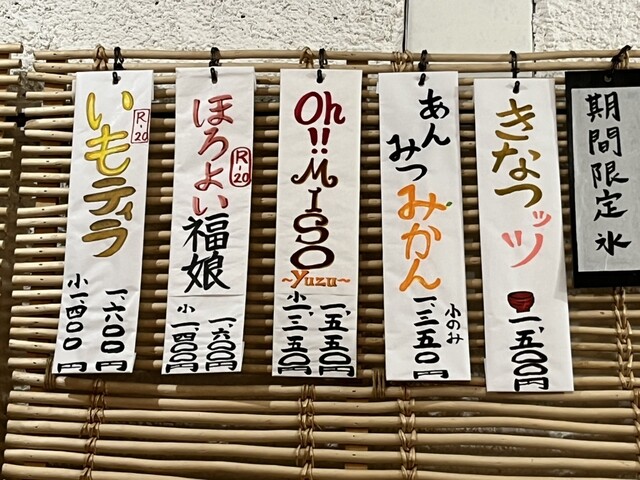 期間限定氷
きなつッツ
一、五〇〇円
あん
みつみかん
小のみ
一、三五〇円
Oh!! MISO
~Yuzu~
一、五五〇円
小一、三五〇円
ほろよい福娘
R-20
一、六〇〇円
小一四〇〇円
いもティラ
R-20
一、六〇〇円
小一四〇〇円